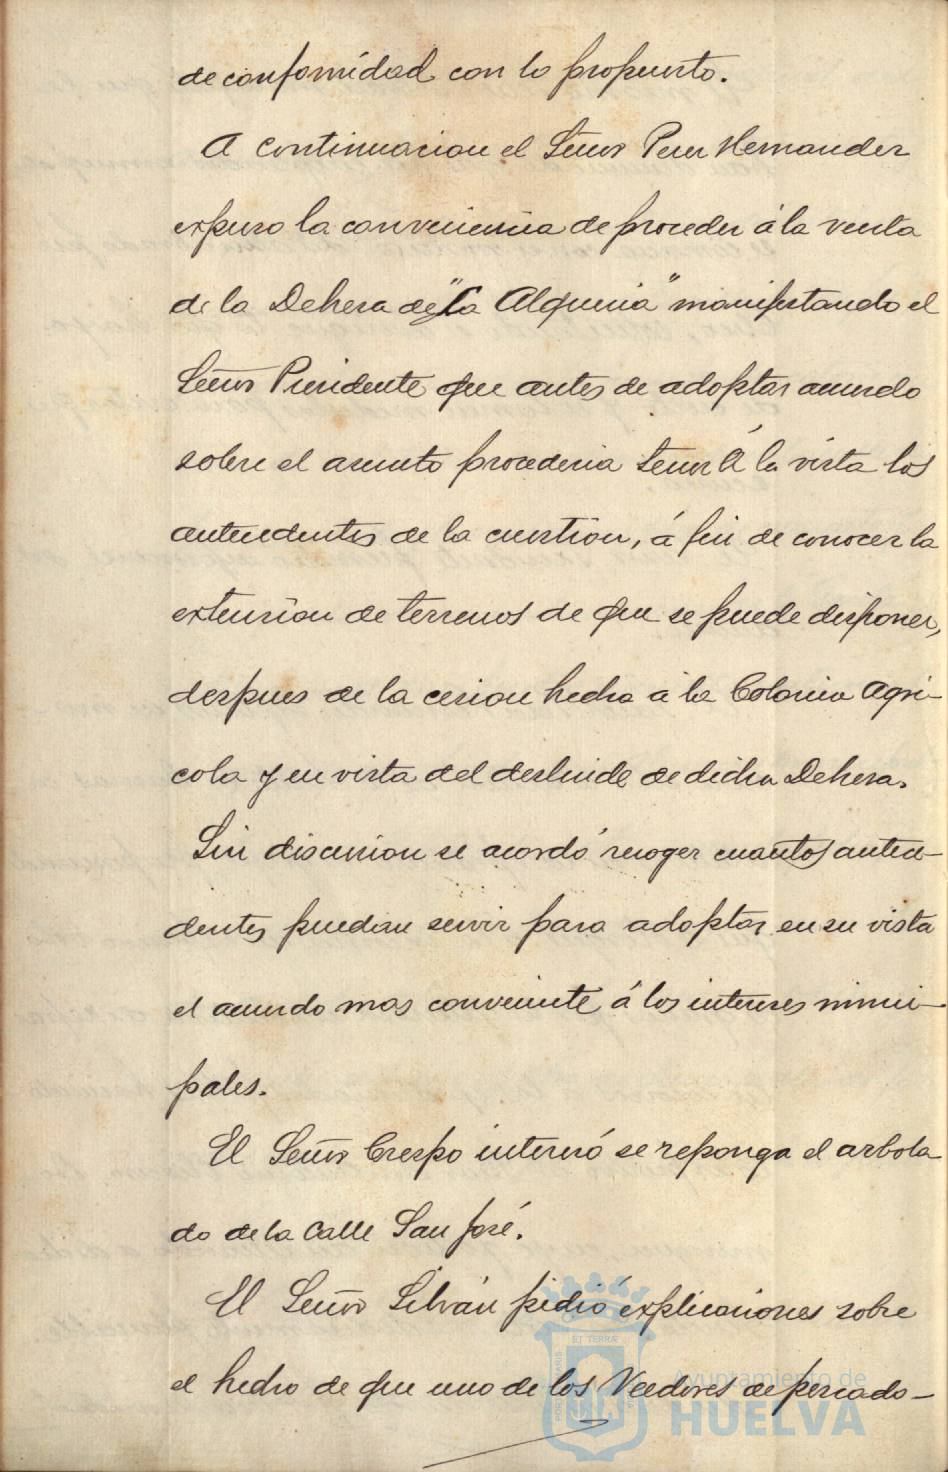 de conformidad con lo propuesto.
A continuacion el Señor Perez Hernandez
expuso la conveniencia de proceder á la venta
de la Dehesa de "La Alqueria" manifestando el
Señor Presidente que antes de adoptar acuerdo
sobre el asunto procederia tener á la vista los
antecedentes de la cuestion, á fin de conocer la
extension de terrenos de que se puede disponer,
despues de la cesion hecha á la Colonia Agri-
cola y en vista del deslinde de dicha Dehesa.
Sin discusion se acordó recoger cuantos antece-
dentes puedan servir para adoptar en su vista
el acuerdo mas conveniente á los intereses munici-
pales.
El Señor Crespo interesó se reponga el arbola-
do de la Calle San José.
El Señor Silván pidió explicaciones sobre
el hecho de que uno de los Veedores de pescado-
Ayuntamiento de
HUELVA